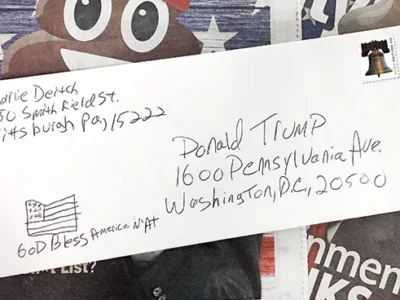 arlie Deitch
50 Smithfield St.
ittsburgh Pa, 15222
Donald Trump
1600 Pemsylvania Ave.
Washington, D.C., 20500
GOD Bless America N'AT
t List?
nmen